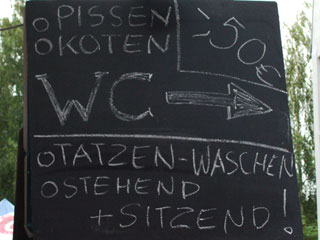 o PISSEN
o KOTEN
-,50€
WC
o TATZEN-WASCHEN
o STEHEND
+ SITZEND!